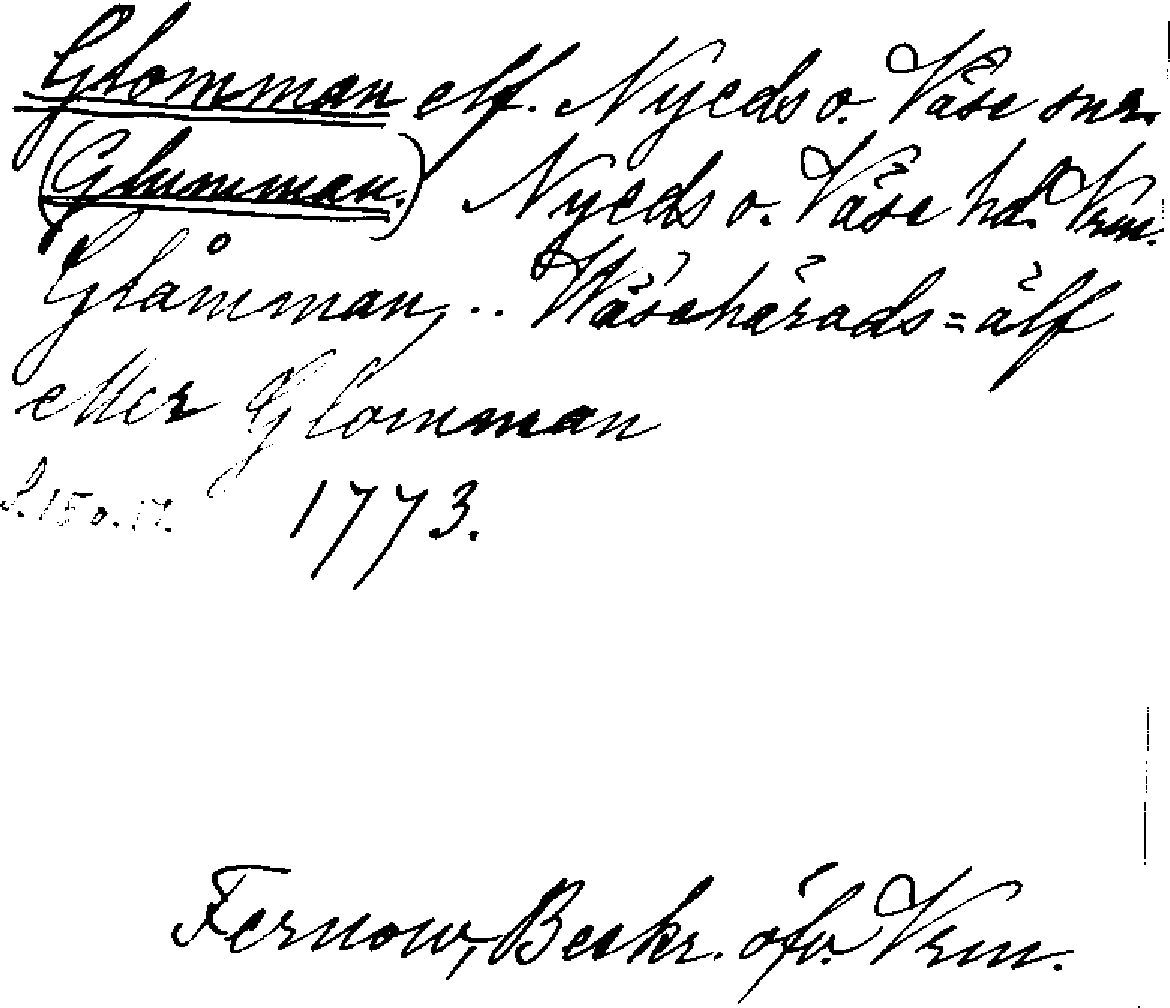 Glomman elf. Nyeds o. Väse snr.
(Glumman.) Nyeds o. Väse hd. Vrm.
Glåmman, .. Wäsehärads=älf
eller Glomman
S. 15 o. 17. 1773.
Fernow, Beskr. öfv. Vrm.